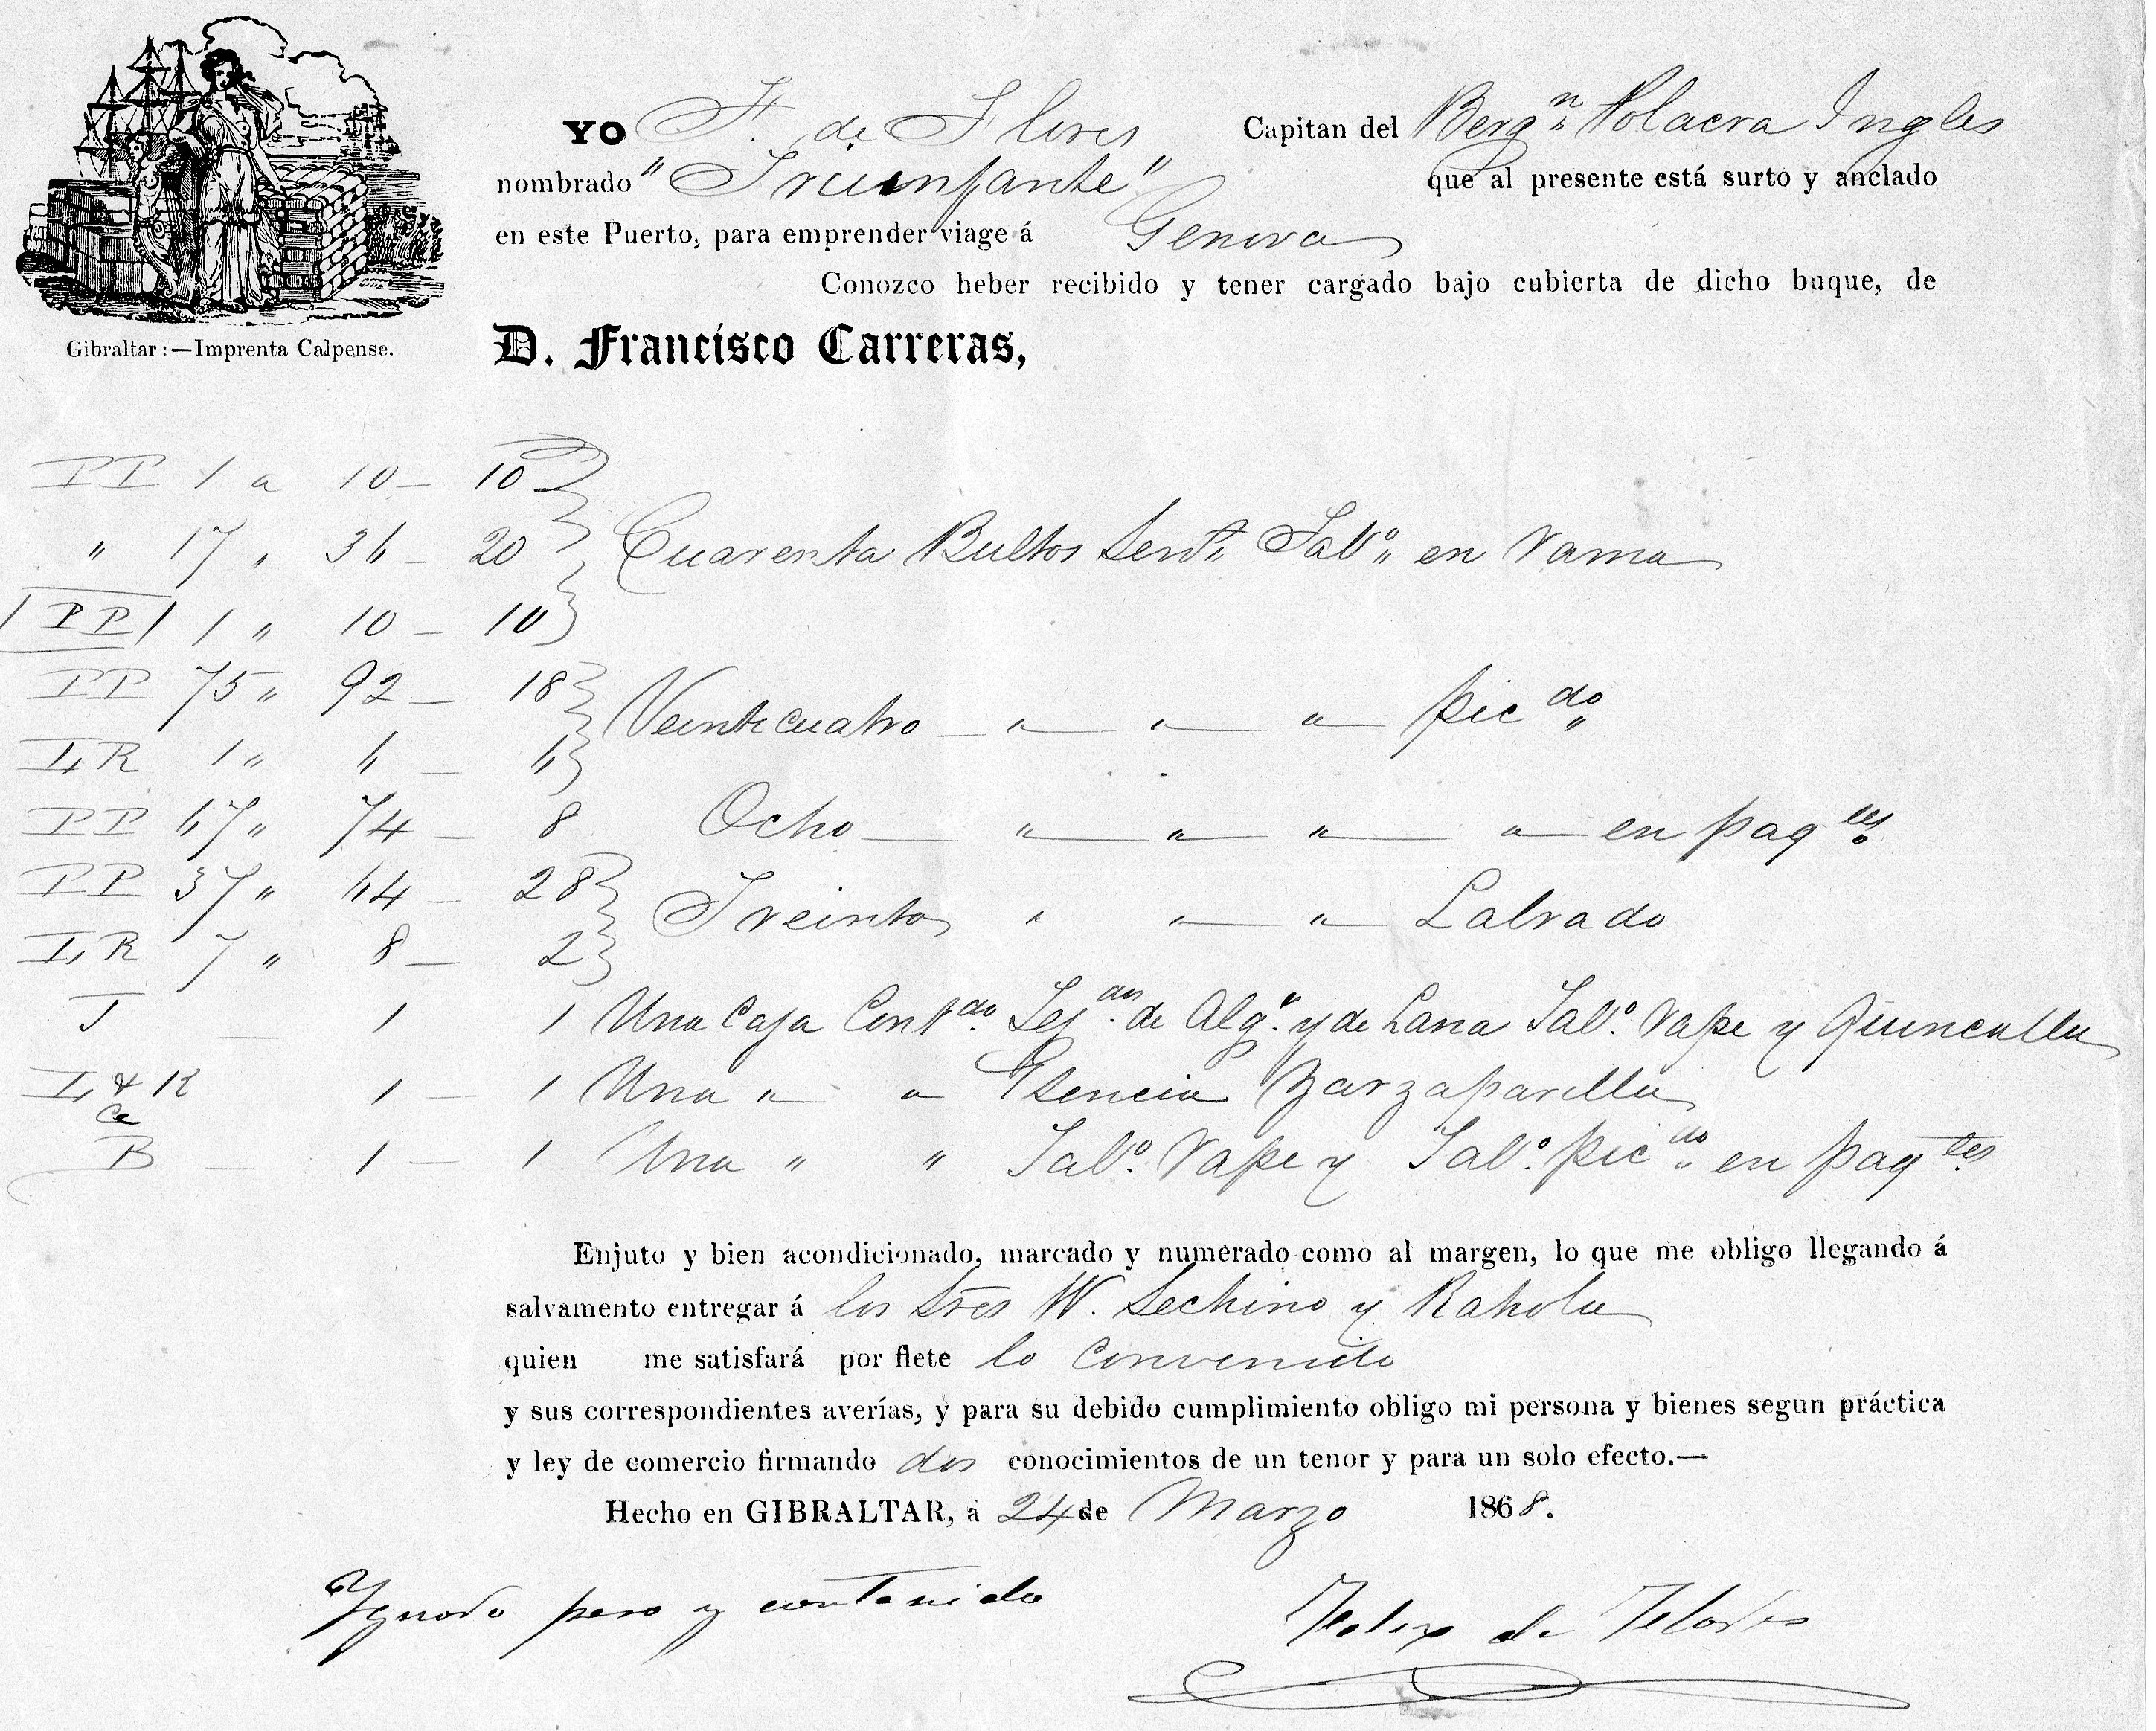 YO F. de Flores Capitan del Berg.n Polacra Ingles
nombrado "Triunfante" que al presente está surto y anclado
en este Puerto, para emprender viage á Genova
Conozco heber recibido y tener cargado bajo cubierta de dicho buque, de
Gibraltar:—Imprenta Calpense.
D. Francisco Carreras,
PP 1 a 10 — 10
" 17 " 36 — 20 Cuarenta Bultos Tab.o en rama
PP 1 " 10 — 10
PP 75 " 92 — 18
Veinticuatro — " — " — " — pic.do
LR 1 " 6 — 6
PP 67 " 74 — 8 Ocho — " — " — " — " — en paq.tes
PP 37 " 64 — 28
Treinta " " — " — Labrado
LR 7 " 8 — 2
J — 1 1 Una Caja Cont.do Tej.dos de Alg.n y de Lana Tab.o rape y Quincalla
L & R 1 — 1 Una " — " Esencia Zarzaparilla
Ca
B — 1 — 1 Una " " Tab.o rape y Tab.o pic.do en paq.tes
Enjuto y bien acondicionado, marcado y numerado como al margen, lo que me obligo llegando á
salvamento entregar á los Sres W. Sechino y Rahola
quien me satisfará por flete lo Convenido
y sus correspondientes averías, y para su debido cumplimiento obligo mi persona y bienes segun práctica
y ley de comercio firmando dos conocimientos de un tenor y para un solo efecto.—
Hecho en GIBRALTAR, á 24 de Marzo 1868.
Ygnoro peso y contenido Felix de Flores